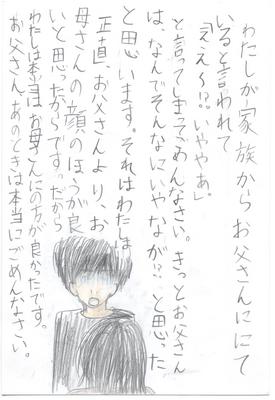 わたしが家族からお父さんににて
いると言われて
「ええ〜!?。いややぁ」
と言ってしまってごめんなさい。きっとお父さん
は、なんでそんなにいやなが!?と思った
と思います。それはわたしは
正直、お父さんより、お
母さんの顔のほうが良
いと思ったからです。だから
わたしは本当は、お母さんにの方が良かったです。
お父さん、あのときは本当にごめんなさい。